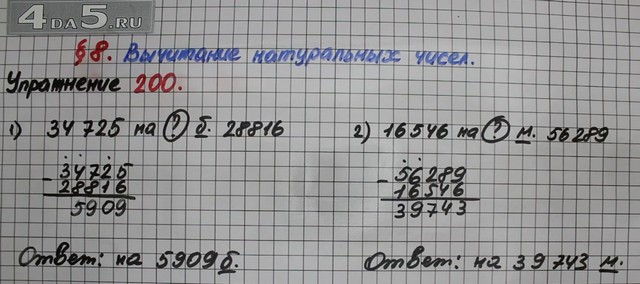 4DA5.RU
§ 8. Вычитание натуральных чисел.
Упражнение 200.
1) 34 725 на ? б. 28816
34725
- 28816
5909
Ответ: на 5909 б.
2) 16 546 на ? м. 56 289
56289
- 16546
39743
Ответ: на 39 743 м.